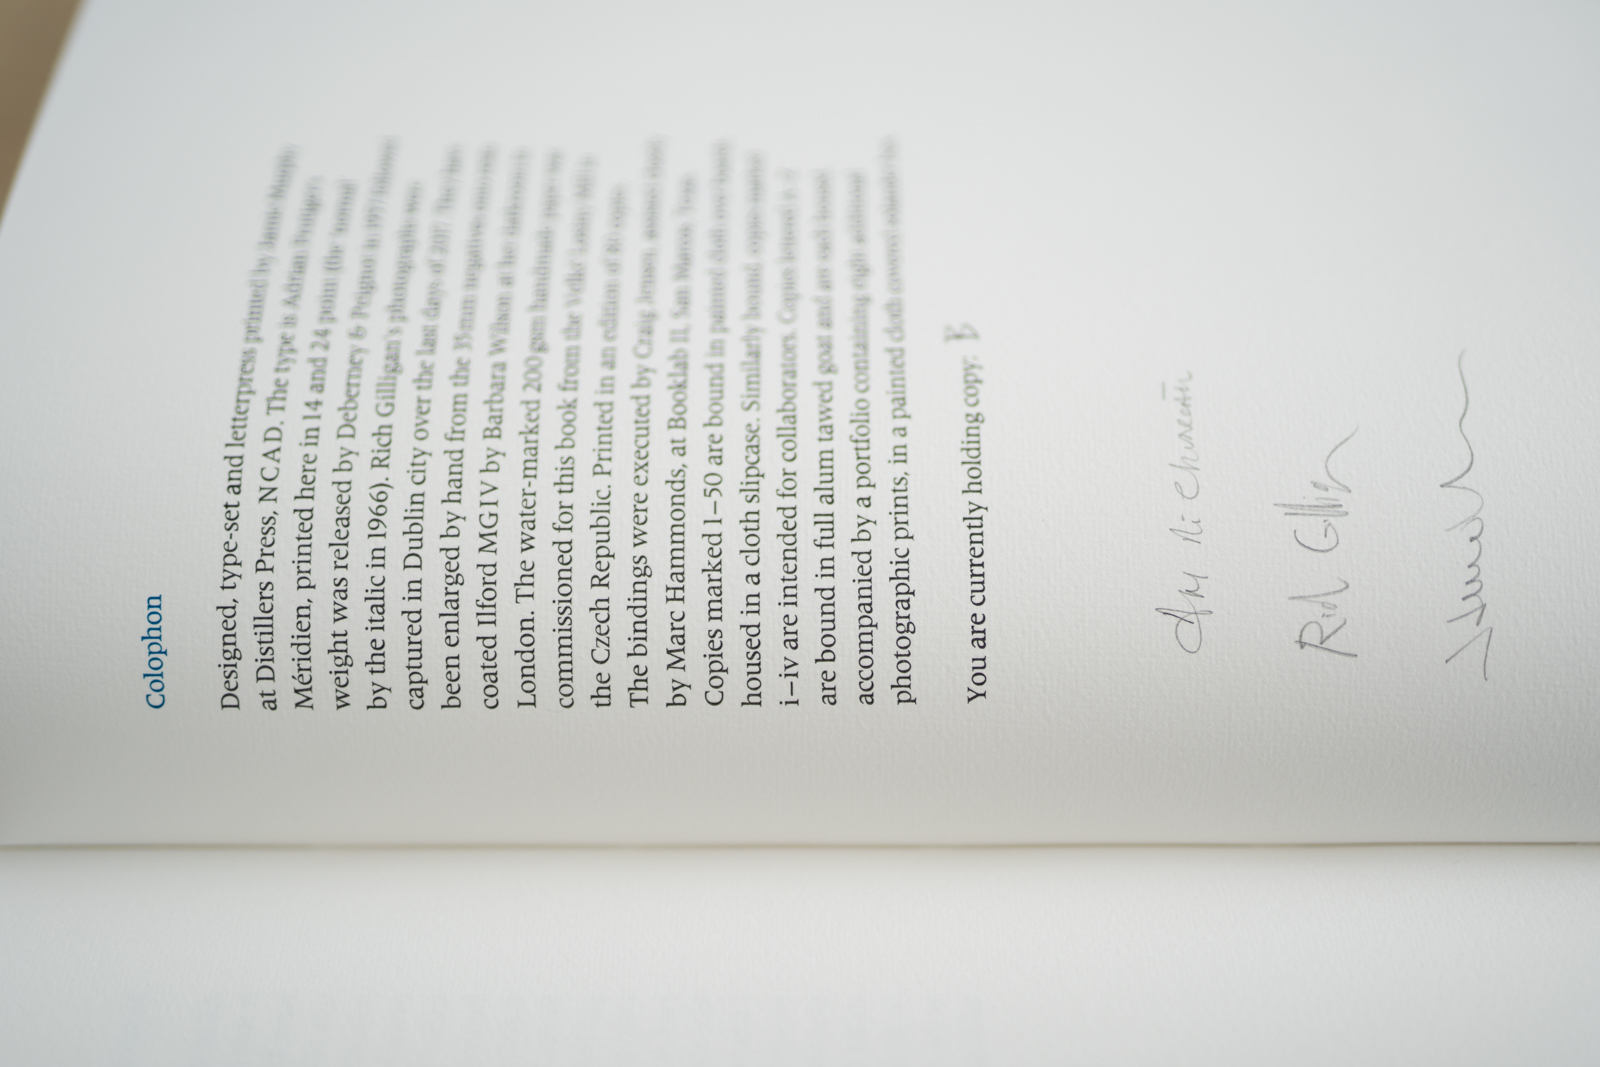 Colophon
Designed, type-set and letterpress printed by Jamie Murphy
at Distillers Press, NCAD. The type is Adrian Frutiger's
Méridien, printed here in 14 and 24 point (the 'normal'
weight was released by Deberney & Peignot in 1957 followed
by the italic in 1966). Rich Gilligan's photographs were
captured in Dublin city over the last days of 2017. They have
been enlarged by hand from the 35mm negatives onto
coated Ilford MGIV by Barbara Wilson at her darkroom in
London. The water-marked 200 gsm handmade paper was
commissioned for this book from the Velké Losiny Mill in
the Czech Republic. Printed in an edition of
The bindings were executed by Craig Jensen, assisted
by Marc Hammonds, at Booklab II, San Marcos, Texas.
Copies marked 1–50 are bound in painted cloth over boards,
housed in a cloth slipcase. Similarly bound, copies
i–iv are intended for collaborators. Copies lettered
are bound in full alum tawed goat and are each
accompanied by a portfolio containing eight
photographic prints, in a painted cloth covered
You are currently holding copy: B
Rich Gillig